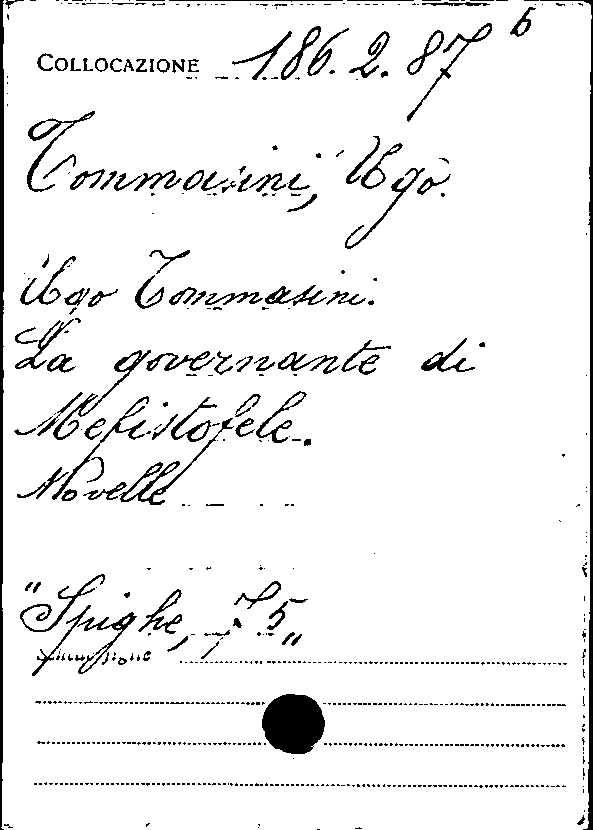 COLLOCAZIONE 186.2.87 b
Tommasini, Ugo.
Ugo Tommasini.
La governante di
Mefistofele.
Novelle
"Spighe, 75„